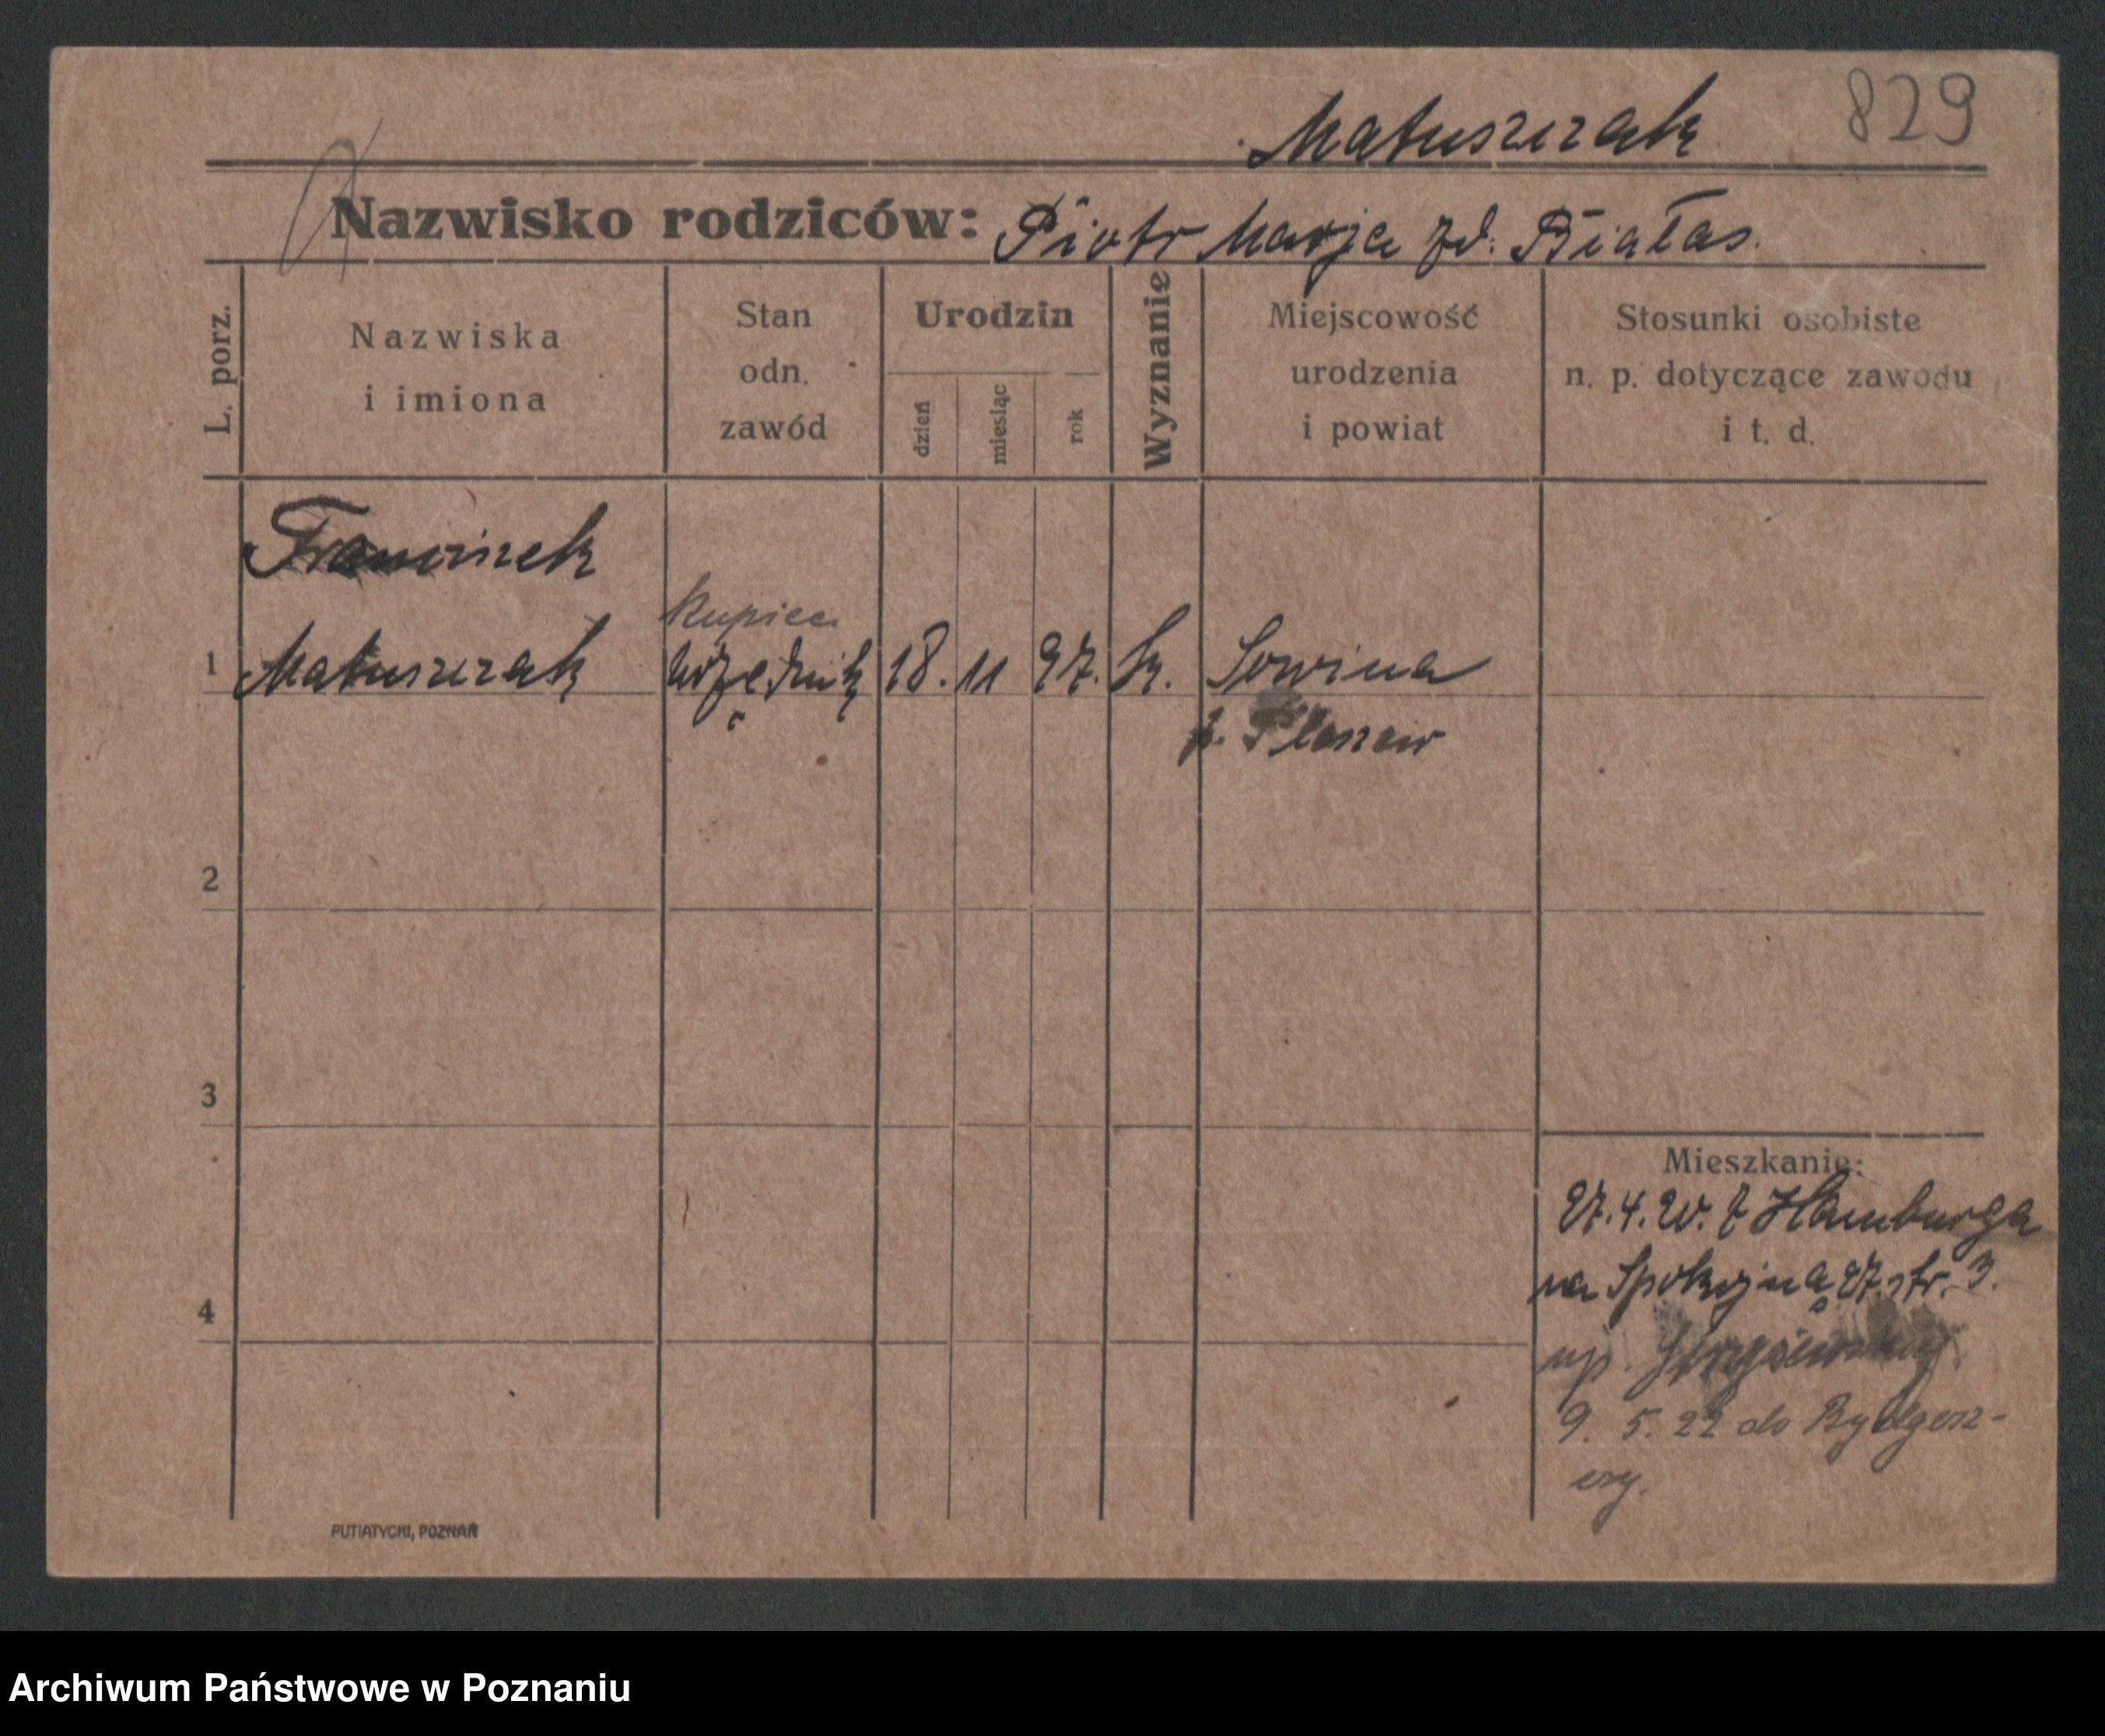 Matuszczak 829
Nazwisko rodziców: Piotr Marja zd. Białas.
L. porz.
Nazwiska
i imiona
Stan
odn.
zawód
Urodzin
dzień
miesiąc
rok
Wyznanie
Miejscowość
urodzenia
i powiat
Stosunki osobiste
n. p. dotyczące zawodu
i t. d.
Franciszek
kupiec
1 Matuszczak urzędnik 18. 11 97. k. Sowina
p. Pleszew
2
3
4
Mieszkanie:
27.4.20. z Hamburga
na Spokojną 27. str. 3.
up.
9. 5. 22 do Bydgosz-
czy.
PUTIATYCKI, POZNAŃ
Archiwum Państwowe w Poznaniu